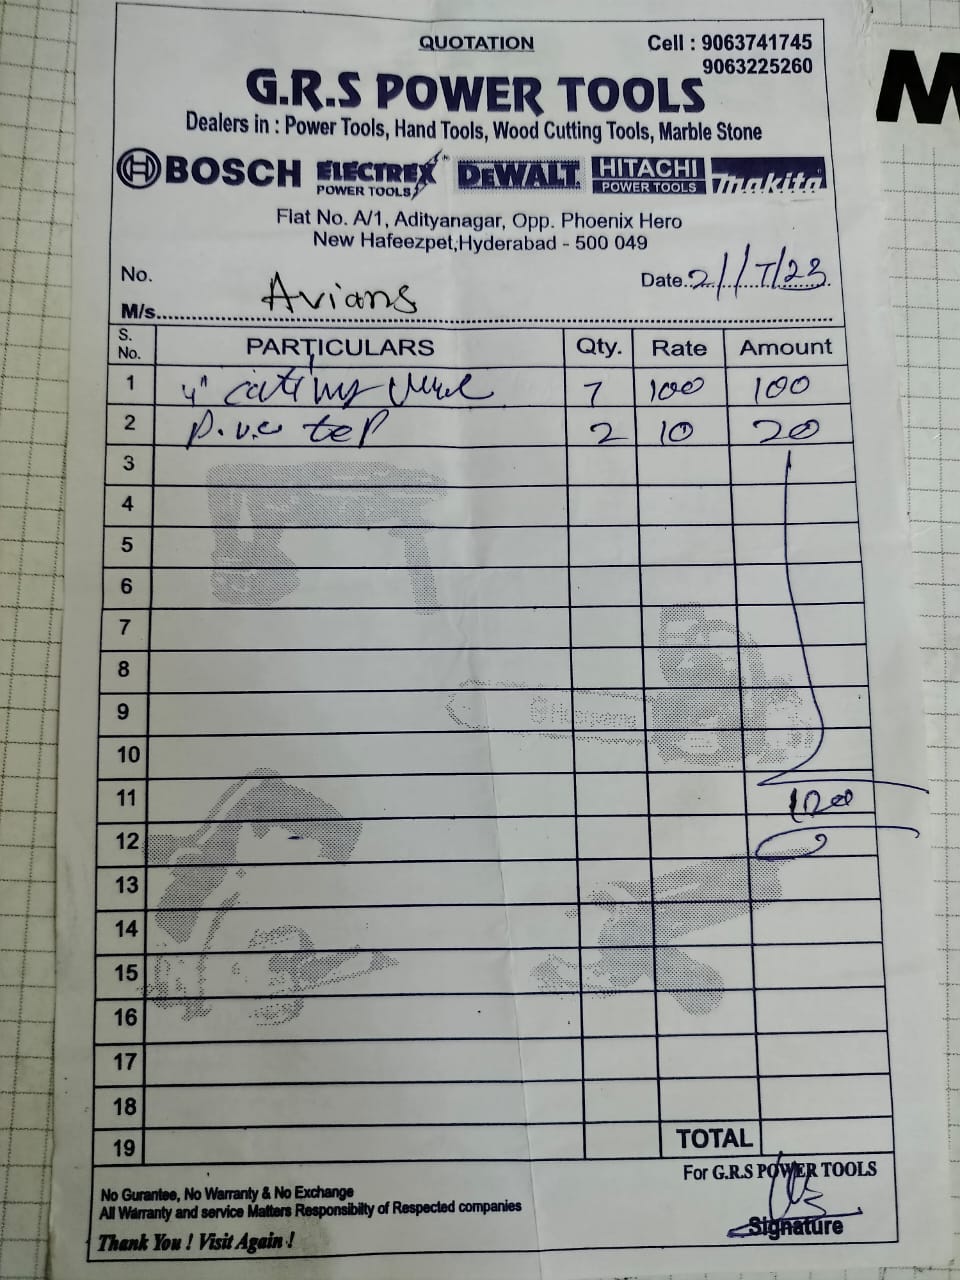 QUOTATION
Cell : 9063741745
9063225260
G.R.S POWER TOOLS
Dealers in : Power Tools, Hand Tools, Wood Cutting Tools, Marble Stone
BOSCH ELECTREX POWER TOOLS DEWALT HITACHI POWER TOOLS makita
Flat No. A/1, Adityanagar, Opp. Phoenix Hero
New Hafeezpet,Hyderabad - 500 049
No. Date
M/s. Avians
S. No. PARTICULARS Qty. Rate Amount
1 4" 100 100
2 P.v.c tep 2 10 20
3
4
5
6
7
8
9
10
11 120
12
13
14
15
16
17
18
19 TOTAL
For G.R.S POWER TOOLS
No Gurantee, No Warranty & No Exchange
All Warranty and service Matters Responsibilty of Respected companies
Signature
Thank You ! Visit Again !